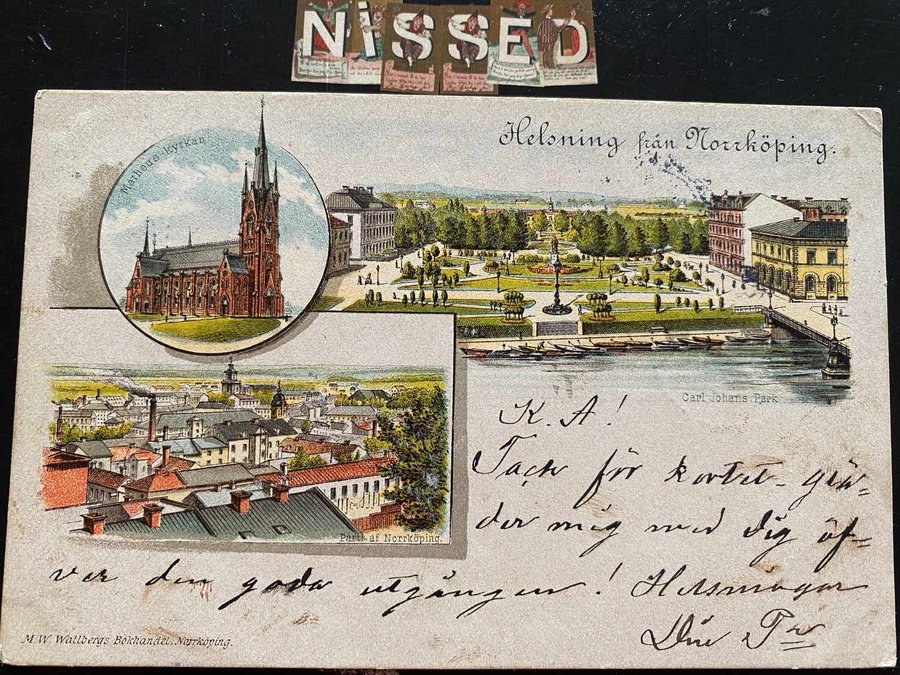 NISSED
Helsning från Norrköping.
Matheus-kyrkan
Carl Johans Park
Parti af Norrköping.
K. A!
Tack för kortet - gläd-
der mig med dig öf-
ver den goda utgången! Helsningar
Din
M. W. Wallbergs Bokhandel, Norrköping.